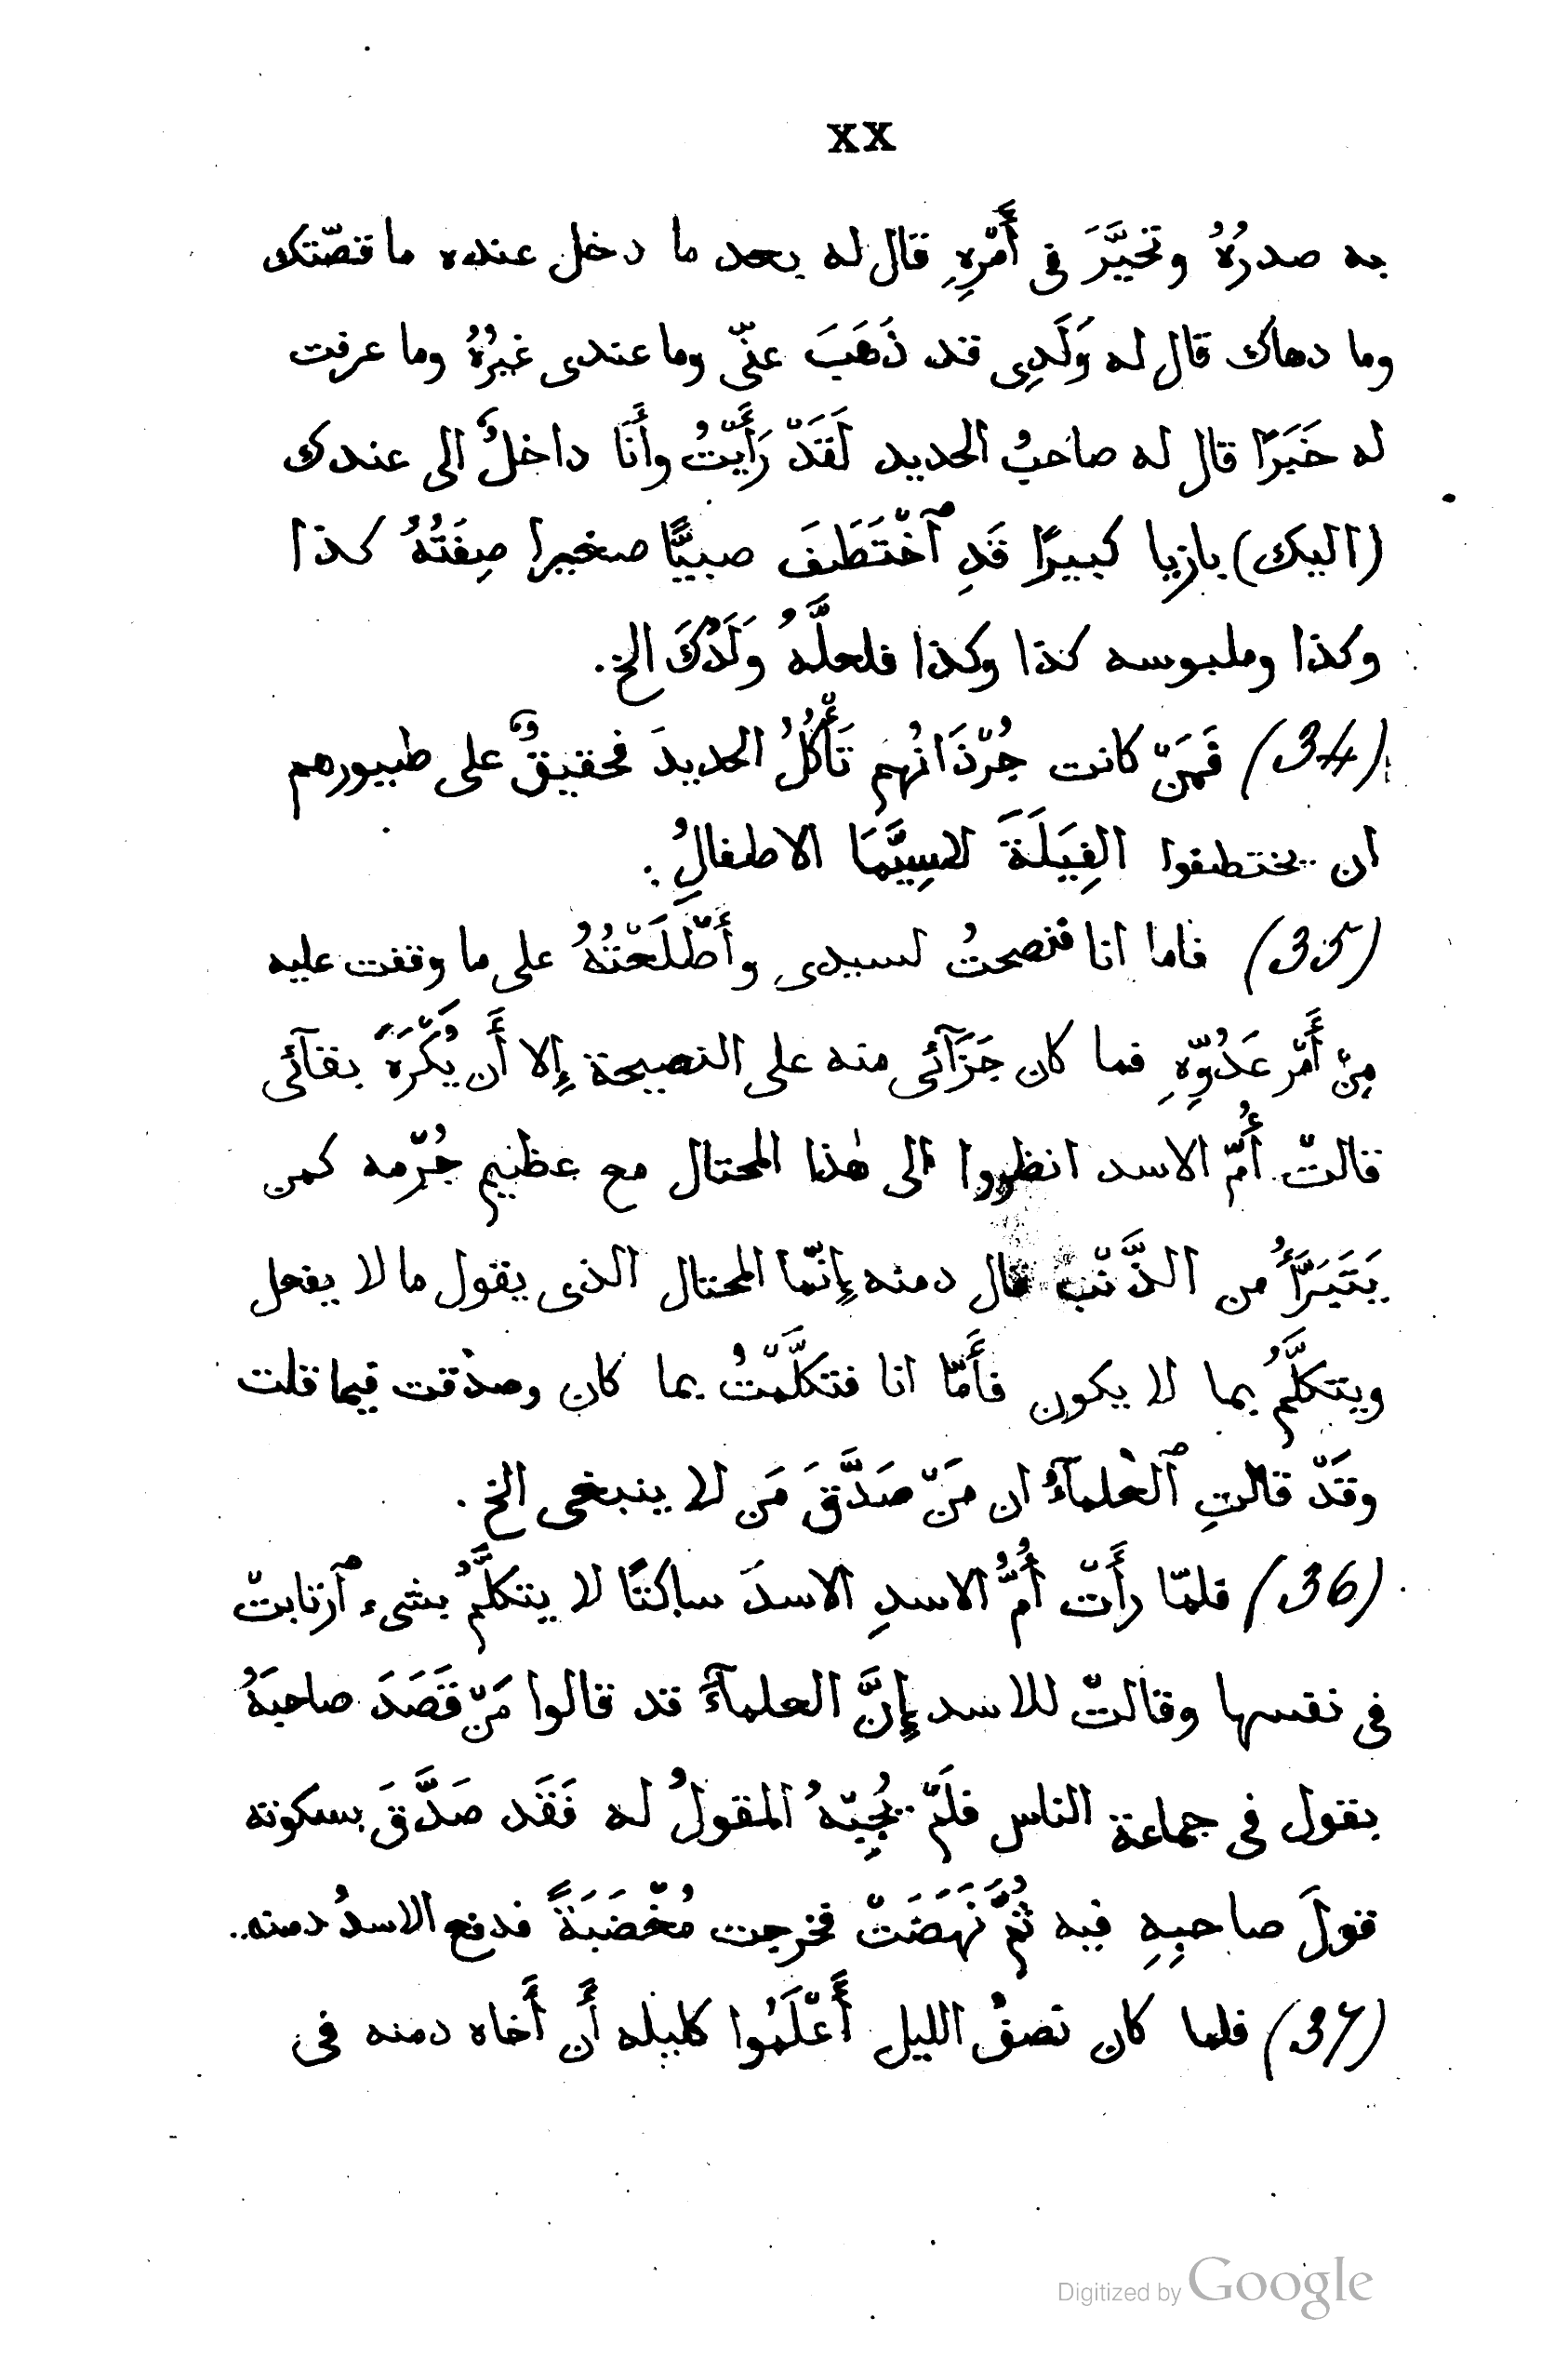 XX
به صدرُهُ وتَحَيَّرَ فى أَمْرِهِ قال له بعد ما دخل عنده ما قصّتك
وما دهاك قال له وَلَدِى قد ذَهَبَ عنّى وما عندى غيرُهُ وما عرفت
له خَبَرًا قال له صاحبُ الحديد لَقَدْ رَأَيْتُ وأَنَا داخلٌ الى عندك
(اليك) بازيا كبيرًا قَدِ ٱخْتَطَفَ صبيًّا صغيرا صِفَتُهُ كذا
وكذا وملبوسه كذا وكذا فلعلَّهُ وَلَدُكَ الخ.
(34) فَمَنْ كانت جُرْذَانُهم تَأْكُلُ الحديدَ فحقيقٌ على طيورهم
ان يختطفوا الفِيَلَةَ لاسِيَّمَا الاطفالُِ.
(35) فاما انا فنصحتُ لسيدى وأَطْلَعْتُهُ على ما وقفت عليه
مِنْ أَمْر عَدُوِّهِ فما كان جَزَآئى منه على النصيحة إِلا أَن يَكْرَهَ بقآئى
قالتْ أُمّ الاسد انظروا الى هٰذا المحتال مع عظيم جُرْمه كمن
يَتَبَرَّأُ من الذَّنْب قال دمنه إِنّما المحتال الذى يقول ما لا يفعل
ويتكلَّمُ بما لا يكون فأَمّا انا فتكلَّمْتُ بما كان وصدقت فيما قلت
وقَدْ قالتِ ٱلعُلمآءُ ان مَنْ صَدَّقَ مَن لا ينبغى الخ.
(36) فلمّا رأَتْ أُمُّ الاسدِ الاسدَ ساكتًا لا يتكلَّمُ بشىء ٱرتابتْ
فى نفسها وقالتْ للاسد إِنَّ العلمآءَ قد قالوا مَنْ قَصَدَ صاحبَهُ
بقول فى جماعة الناس فلَمْ يُجِبْهُ المقولُ له فَقَد صَدَّقَ بسكوته
قولَ صاحبِهِ فيه ثُمَّ نَهَضَتْ فخرجت مُغْضَبَةً فدفع الاسدُ دمنه..
(37) فلما كان نصفُ الليل أَعْلَمُوا كليله أَن أَخاه دمنه فى
Digitized by Google